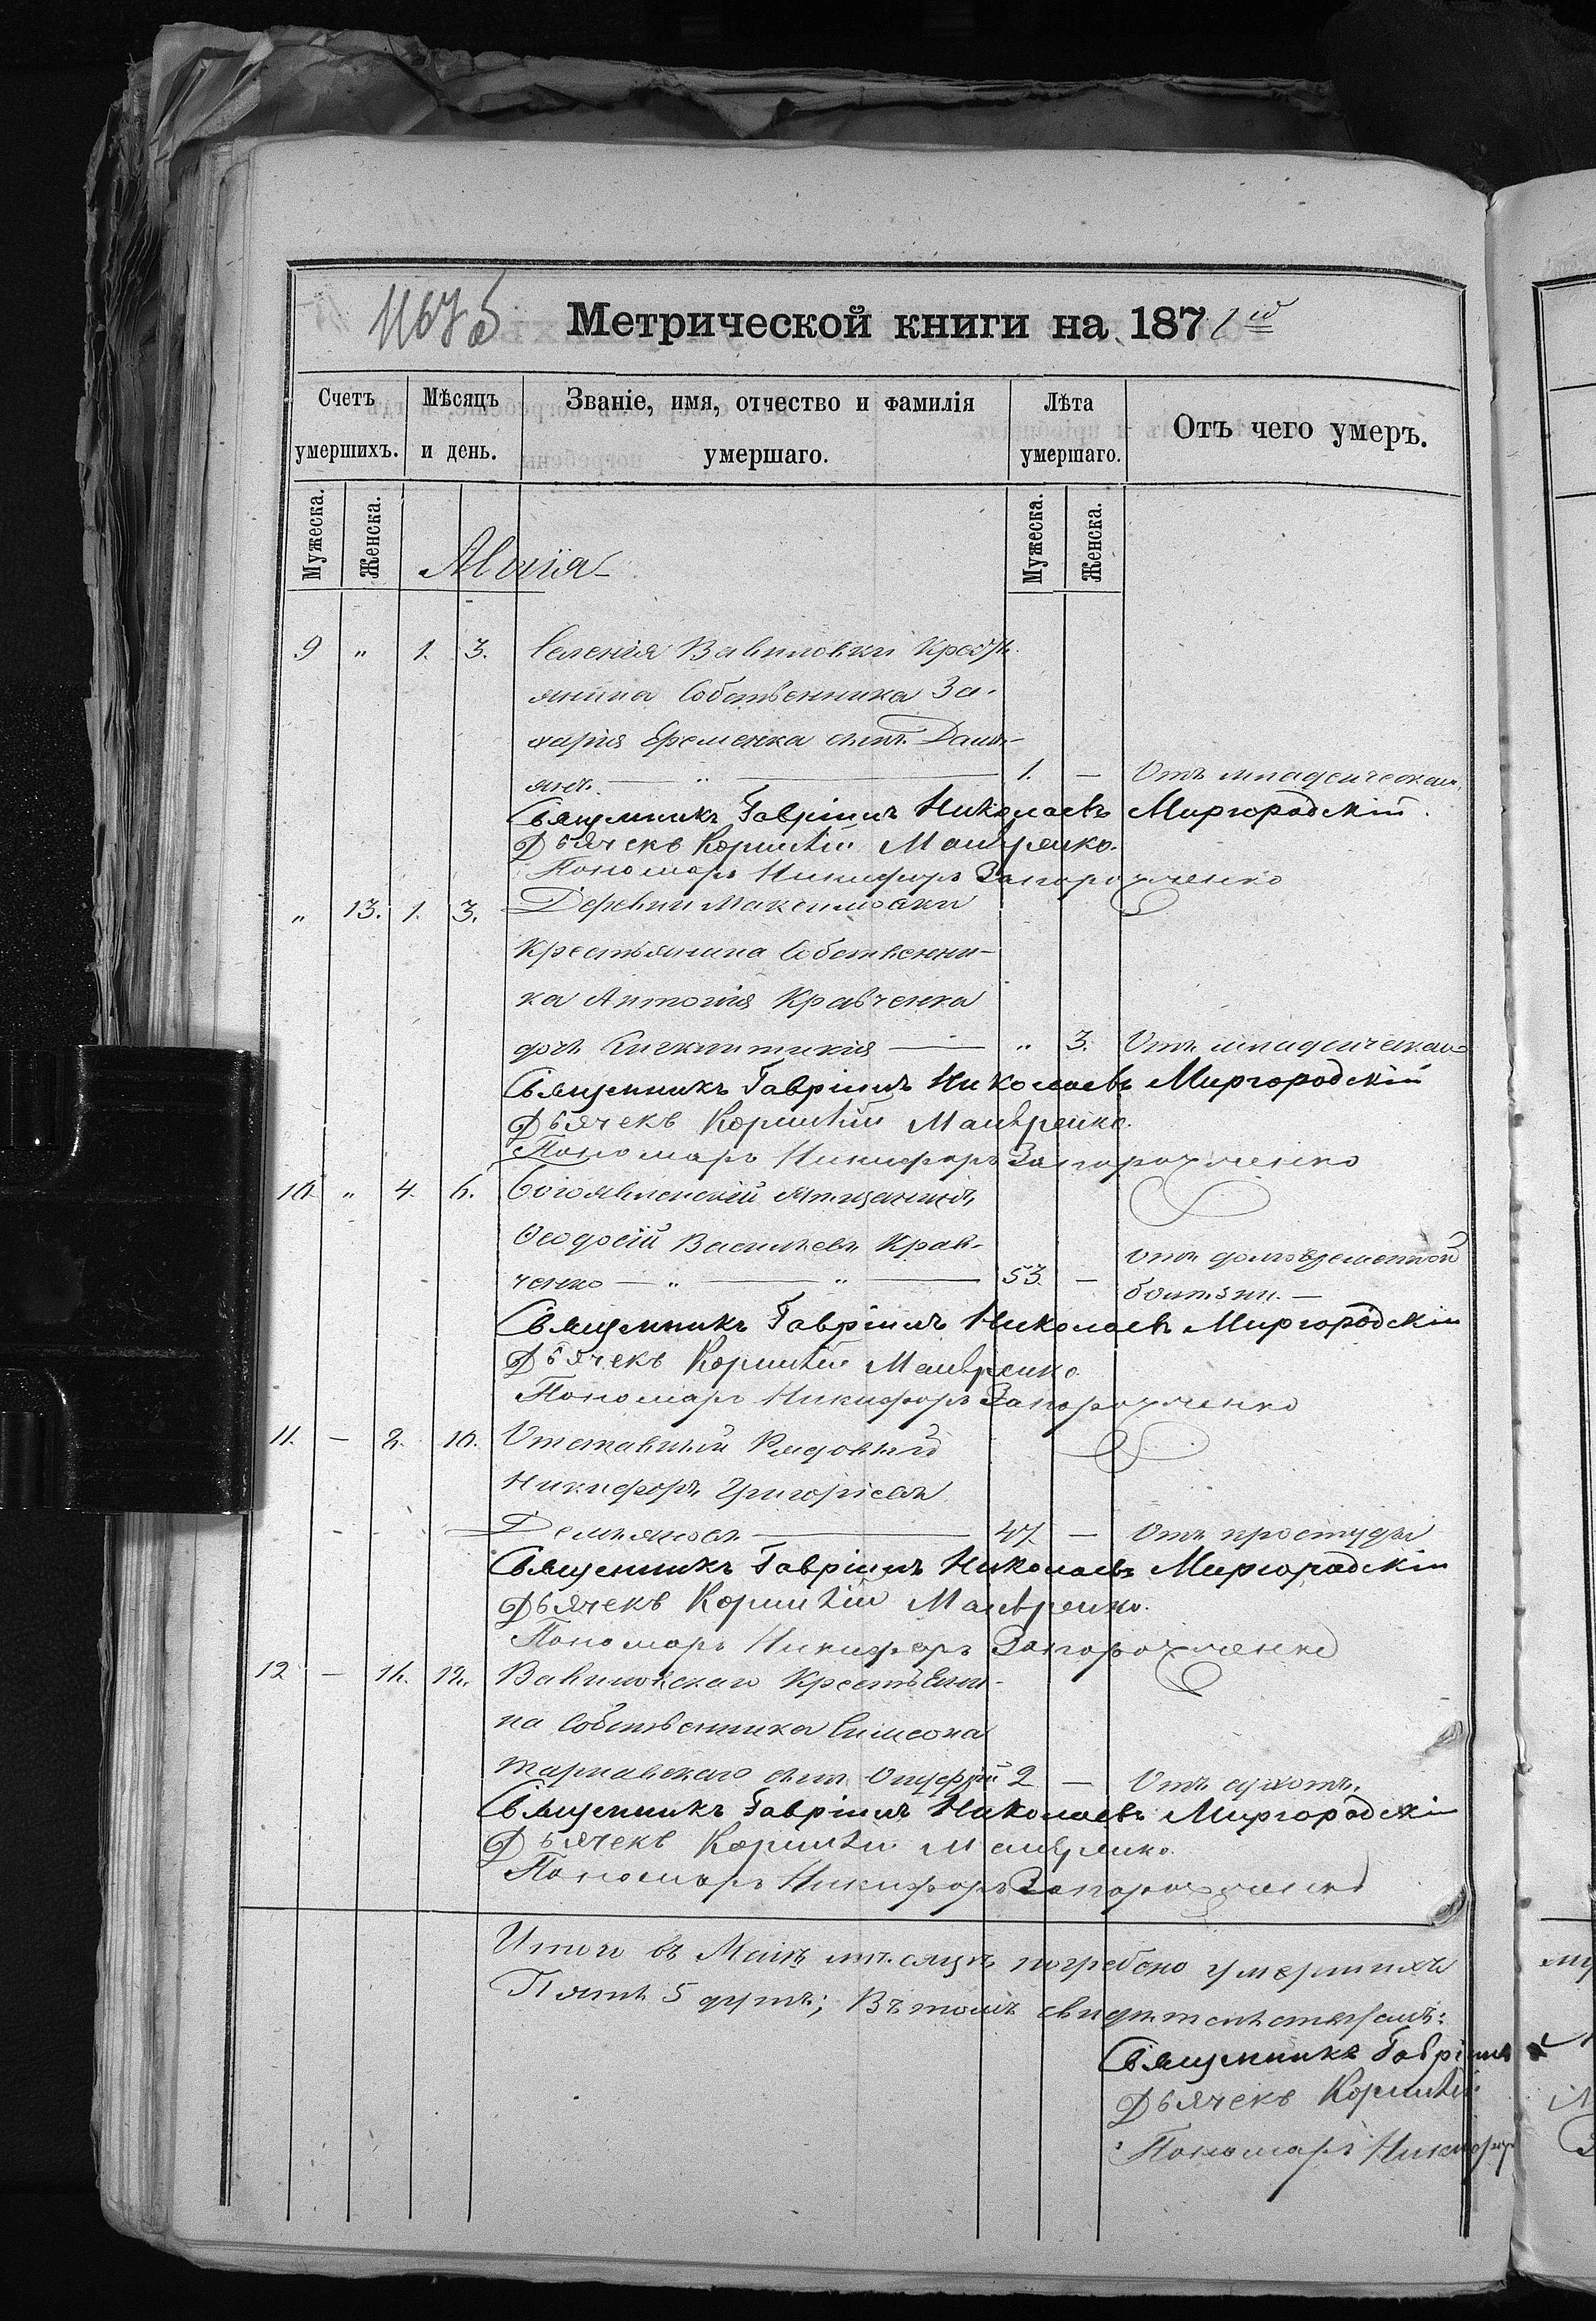 Метрической книги на 1871 го
Счетъ умершихъ.
Мѣсяцъ и день.
Званіе, имя, отчество и фамилія умершаго.
Лѣта умершаго.
Отъ чего умеръ.
Мужеска. Женска. Мужеска. Женска.
Маія
9 „ 1. 3. Селенія Вавиловки Кресть-
янина Собственника За-
харія Еременка сынъ Дамі-
янъ. — „ — 1. — Отъ младенческой
Священникъ Гавріилъ Николаевъ Миргородскій.
Дьячекъ Корнилій
Пономарь Никифоръ Запорожченко
„ 13. 1. 3. Деревни Максимовки
Крестьянина Собственни-
ка Антонія Кравченка
дочь — „ 3. Отъ младенческой
Священникъ Гавріилъ Николаевъ Миргородскій
Дьячекъ Корнилій
Пономарь Никифоръ Запорожченко
10. „ 4. 6. Богоявленскій мѣщанинъ
Ѳеодосій Васильевъ Крав-
ченко — „ — „ — 53. — отъ долговременной
болѣзни. —
Священникъ Гавріилъ Николаевъ Миргородскій
Дьячекъ Корнилій
Пономарь Никифоръ Запорожченко
11. — 8. 10. Отставный Рядовый
Никифоръ Григоріевъ
Демьяновъ — 47. — Отъ простуды
Священникъ Гавріилъ Николаевъ Миргородскій
Дьячекъ Корнилій
Пономарь Никифоръ Запорожченко
12 — 11. 12. Вавиловскаго Крестьяни-
на Собственника Симеона
Тарнавскаго сынъ Онуфрій 2 — Отъ сухотъ.
Священникъ Гавріилъ Николаевъ Миргородскій
Дьячекъ Корнилій
Пономарь Никифоръ Запорожченко
Итого въ Маіѣ мѣсяцѣ погребено умершихъ
Пять 5 душъ; Въ томъ свидѣтельствуемъ:
Священникъ Гавріилъ
Дьячекъ Корнилій
Пономарь Никифоръ